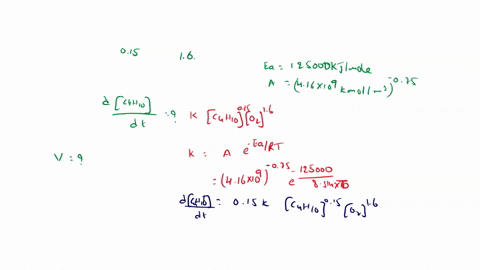 0.15 1.6.
Ea = 125000 KJ/mole
A = (4.16×10^9 kmol/m^3)^-0.75
d[C4H10]/dt = ? K [C4H10]^0.15 [O2]^1.6
V = ?
K = A e^-Ea/RT
= (4.16×10^9)^-0.75 e^-125000/8.314×T0
d[C4H10]/dt = 0.15 k [C4H10]^0.15 [O2]^1.6